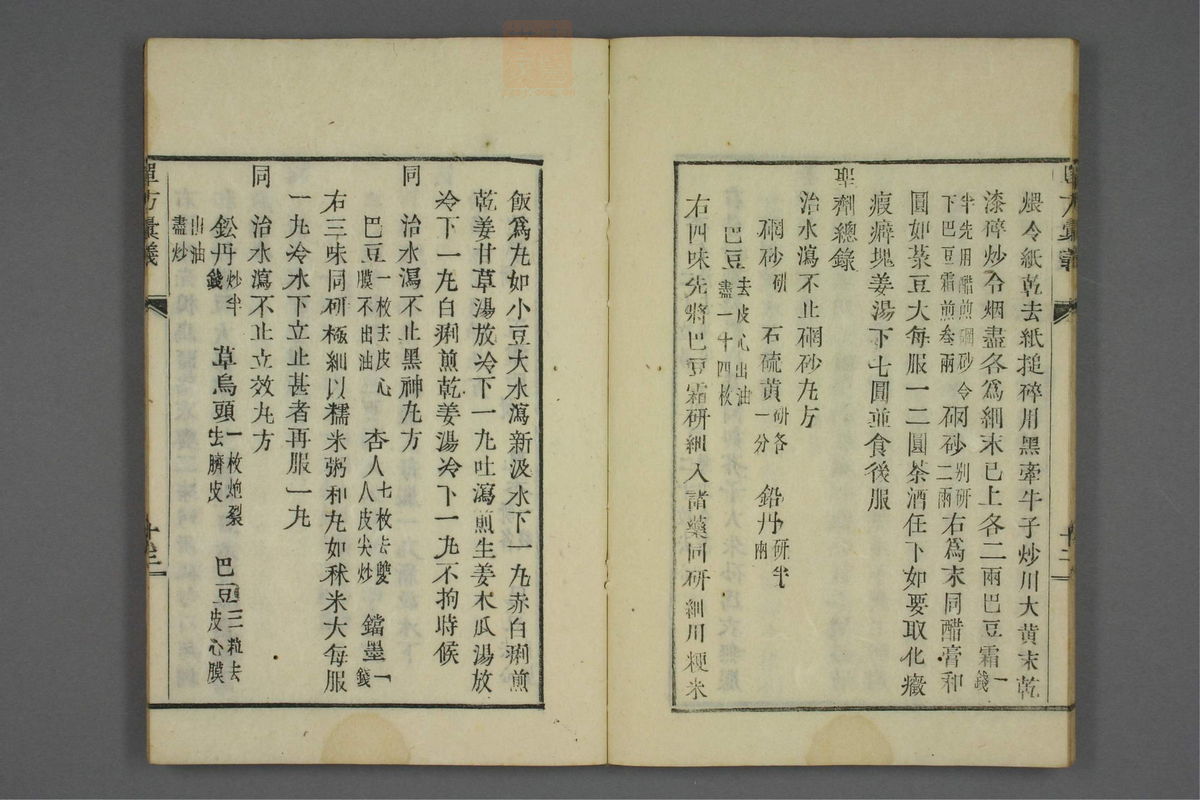 煨令紙乾去紙搥碎用黑牽牛子炒川大黄末乾
漆碎炒令烟盡各爲細末已上各二兩巴豆霜一錢
半先用醋煎硇砂令下巴豆霜煎叁兩硇砂别研二兩右爲末同醋膏和
圓如菉豆大每服一二圓茶酒任下如要取化癥
瘕癖塊姜湯下七圓並食後服
聖劑總錄
治水瀉不止硇砂丸方
硇砂研 石硫黄研各一分 鉛丹研半兩
巴豆去皮心出油盡一十四枚
右四味先將巴豆霜研細入諸藥同研細用粳米
飯爲丸如小豆大水瀉新汲水下一丸赤白痢煎
乾姜甘草湯放冷下一丸吐瀉煎生姜木瓜湯放
冷下一丸白痢煎乾姜湯冷下一丸不拘時候
同 治水瀉不止黑神丸方
巴豆一枚去皮心膜不出油 杏人七枚去雙人皮尖炒 鐺墨一錢
右三味同研極細以糯米粥和丸如秫米大每服
一丸冷水下立止甚者再服一丸
同 治水瀉不止立效丸方
鈆丹炒半錢 草烏頭一枚炮裂去臍皮 巴豆三粒去皮心膜
出油盡炒
單方彙義
十三
十二